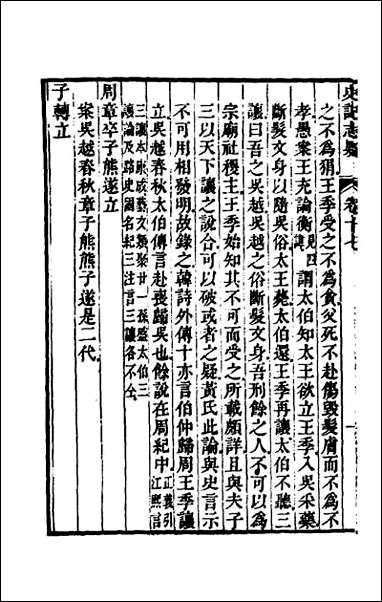 史記志疑 卷十七
之不為狷王季受之不為貪父死不赴傷毀髮膚而不為不
孝愚案王充論衡四諱見謂太伯知太王欲立王季入吳采藥
斷髮文身以隨吳俗太王薨太伯還王季再讓太伯不聽三
讓曰吾之吳越吳越之俗斷髮文身吾刑餘之人不可以為
宗廟社稷主王季始知其不可而受之所載頗詳且與夫子
三以天下讓之說合可以破或者之疑黃氏此論與史言示
不可用相發明故錄之韓詩外傳十亦言伯仲歸周王季讓
立吳越春秋太伯傳言赴喪歸吳也餘說在周紀中正義引江熙言
三讓本此或藝文類聚廿一孫盛太伯三
讓論及路史國名紀三注言三讓各不仝
周章卒子熊遂立
案吳越春秋章子熊熊子遂是二代
子轉立